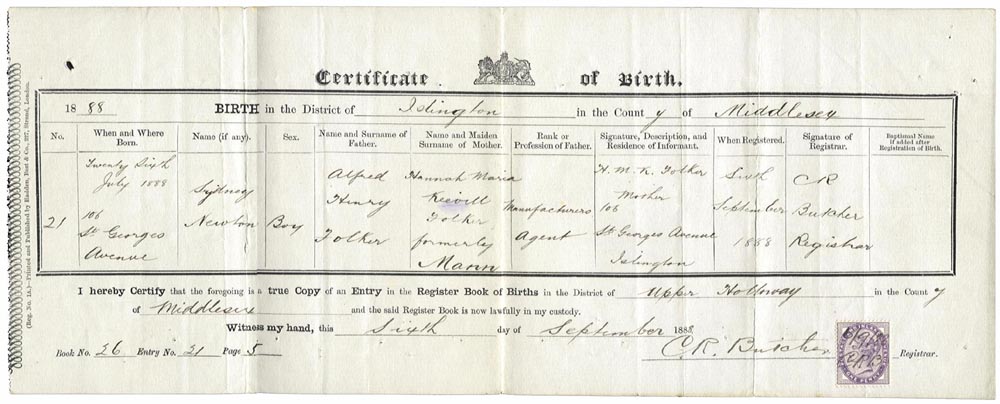 Certificate of Birth.
1888 BIRTH in the District of Islington in the County of Middlesex
No.
When and Where Born.
Name (if any).
Sex.
Name and Surname of Father.
Name and Maiden Surname of Mother.
Rank or Profession of Father.
Signature, Description, and Residence of Informant.
When Registered.
Signature of Registrar.
Baptismal Name if added after Registration of Birth.
21
Twenty Sixth
July 1888
106
St Georges
Avenue
Sydney
Newton
Boy
Alfred
Henry
Folker
Hannah Maria
Keevill
Folker
formerly
Mann
Manufacturers
Agent
H. M. K. Folker
Mother
106
St Georges Avenue
Islington
Sixth
September
1888
CR
Butcher
Registrar
I hereby Certify that the foregoing is a true Copy of an Entry in the Register Book of Births in the District of Upper Holloway in the County
of Middlesex and the said Register Book is now lawfully in my custody.
Witness my hand, this Sixth day of September 1888
Book No. 26 Entry No. 21 Page 5
C R. Butcher Registrar.
(Reg. No. 1A.)—Printed and Published by Hadden, Best & Co., 227, Strand, London.
ONE PENNY